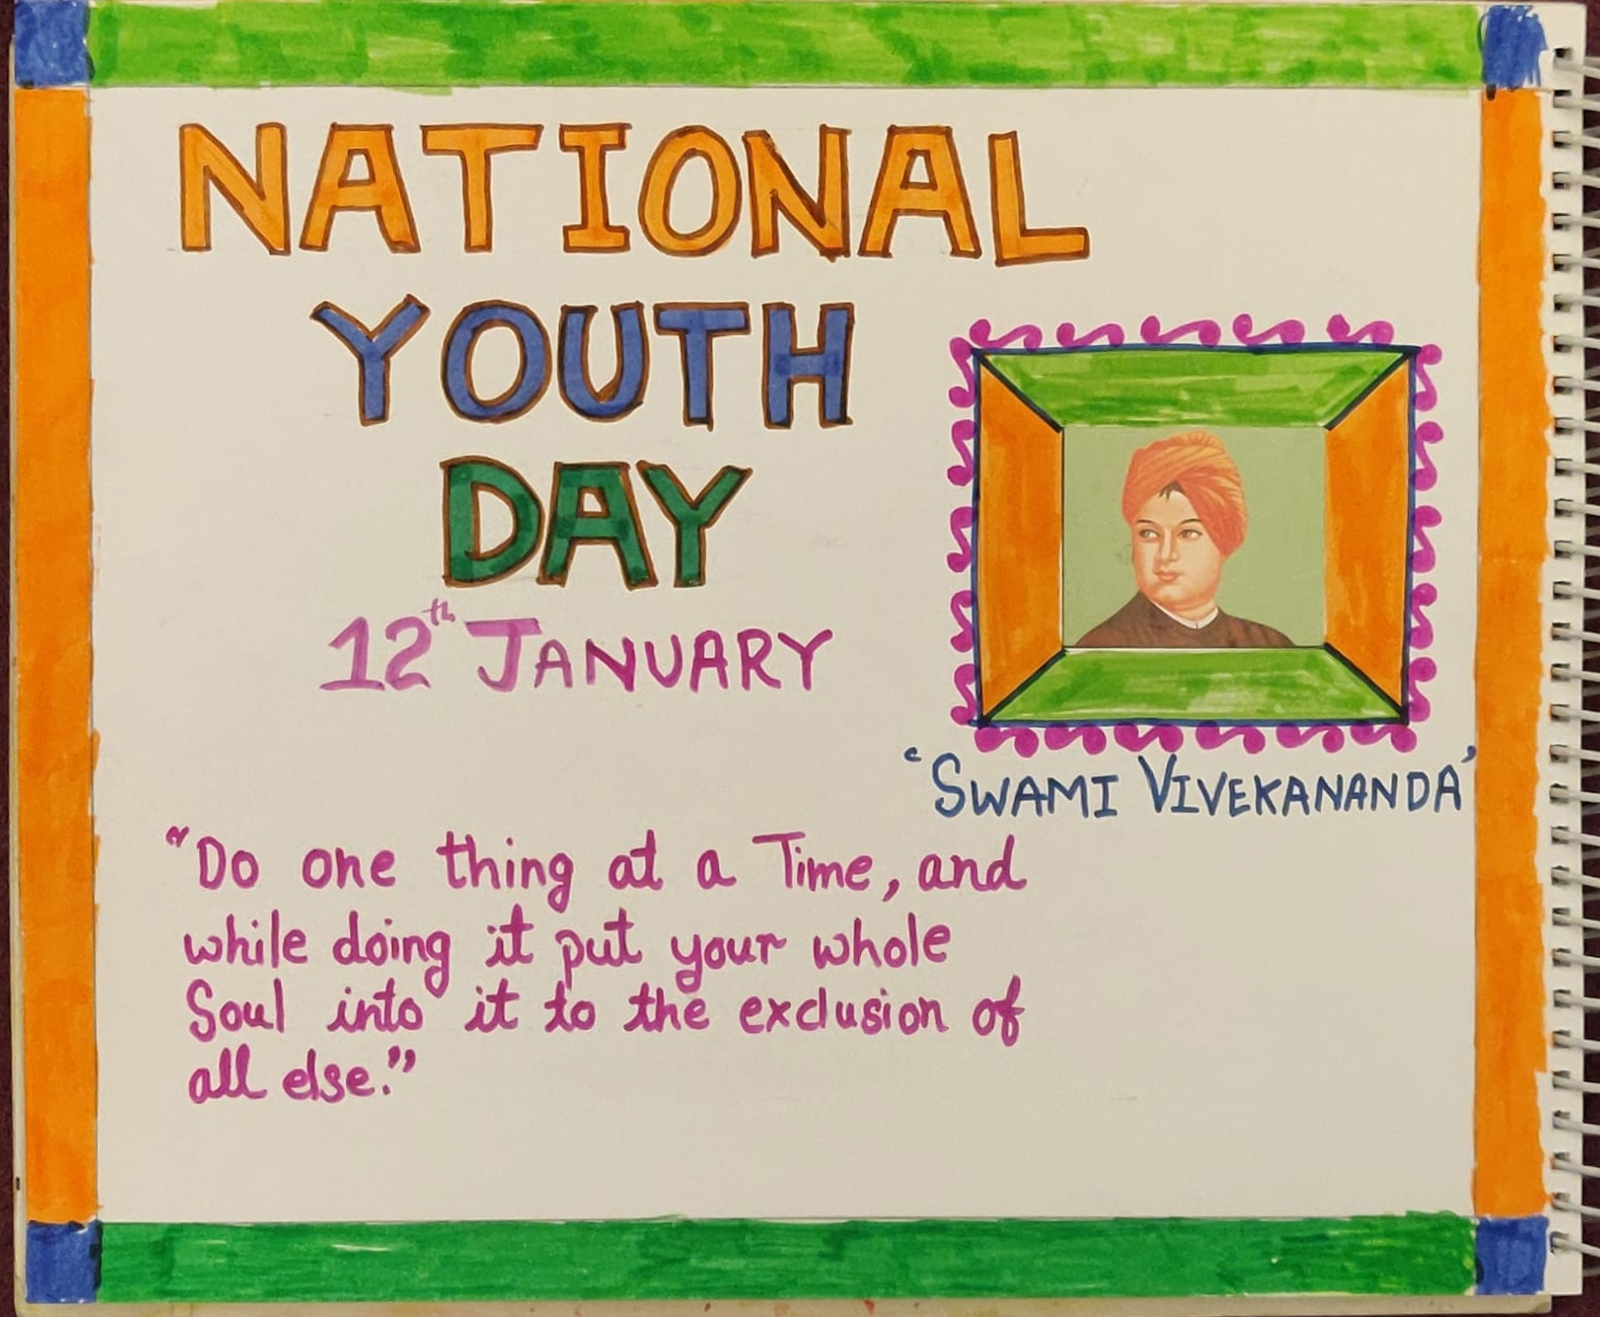 NATIONAL
YOUTH
DAY
12th JANUARY
'SWAMI VIVEKANANDA'
"Do one thing at a Time, and
while doing it put your whole
Soul into it to the exclusion of
all else."